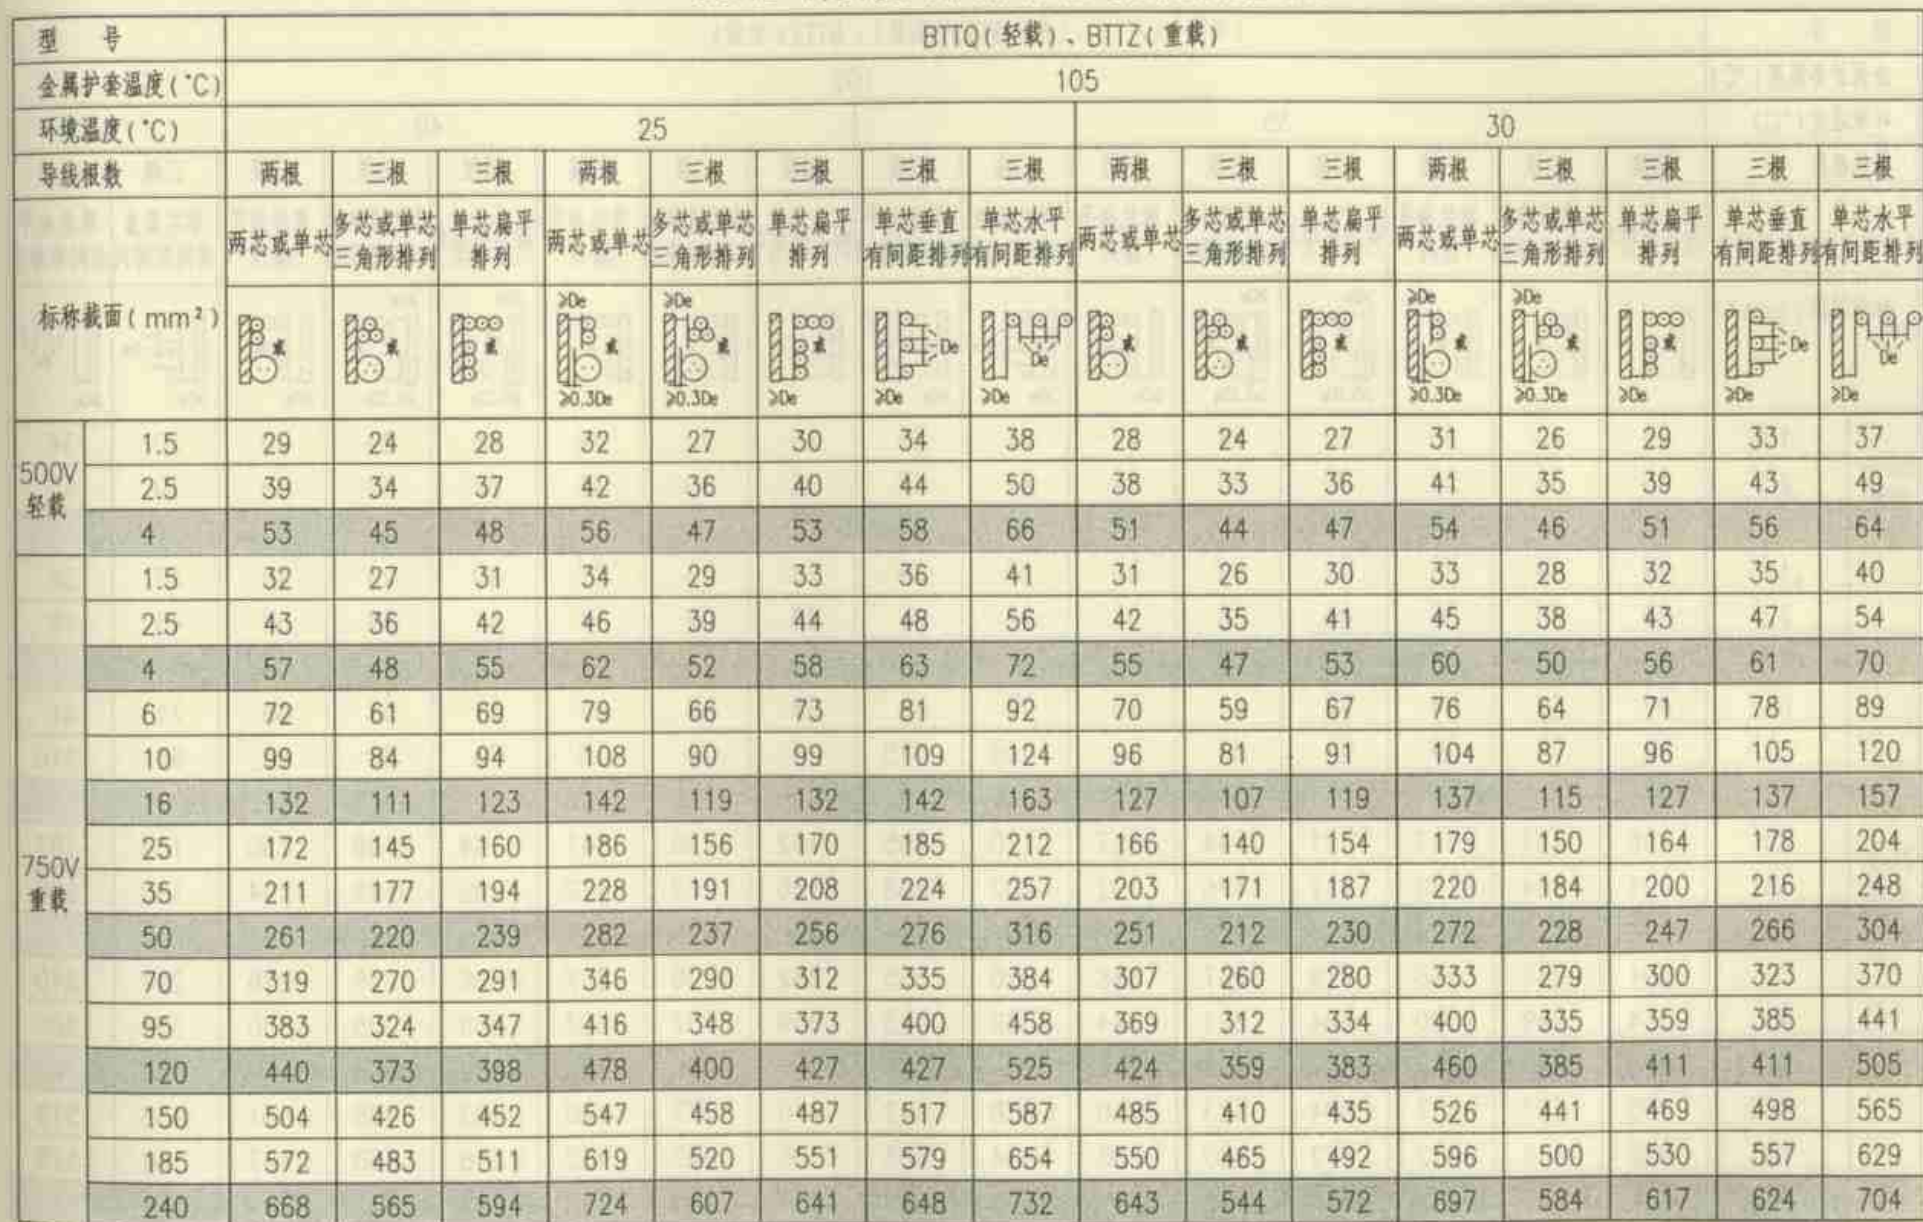 型 号 BTTQ(轻载)、BTTZ(重载)
金属护套温度(°C) 105
环境温度(°C) 25 30
导线根数 两根 三根 三根 两根 三根 三根 三根 三根 两根 三根 三根 两根 三根 三根 三根 三根
标称截面(mm²) 两芯或单芯 多芯或单芯三角形排列 单芯扁平排列 两芯或单芯 多芯或单芯三角形排列 单芯扁平排列 单芯垂直有间距排列 单芯水平有间距排列 两芯或单芯 多芯或单芯三角形排列 单芯扁平排列 两芯或单芯 多芯或单芯三角形排列 单芯扁平排列 单芯垂直有间距排列 单芯水平有间距排列
≥De ≥De ≥De ≥De
或 或 或 或 或 或 De De 或 或 或 或 或 或 De De
≥0.3De ≥0.3De ≥De ≥De ≥De ≥0.3De ≥0.3De ≥De ≥De ≥De
500V 轻载
1.5 29 24 28 32 27 30 34 38 28 24 27 31 26 29 33 37
2.5 39 34 37 42 36 40 44 50 38 33 36 41 35 39 43 49
4 53 45 48 56 47 53 58 66 51 44 47 54 46 51 56 64
750V 重载
1.5 32 27 31 34 29 33 36 41 31 26 30 33 28 32 35 40
2.5 43 36 42 46 39 44 48 56 42 35 41 45 38 43 47 54
4 57 48 55 62 52 58 63 72 55 47 53 60 50 56 61 70
6 72 61 69 79 66 73 81 92 70 59 67 76 64 71 78 89
10 99 84 94 108 90 99 109 124 96 81 91 104 87 96 105 120
16 132 111 123 142 119 132 142 163 127 107 119 137 115 127 137 157
25 172 145 160 186 156 170 185 212 166 140 154 179 150 164 178 204
35 211 177 194 228 191 208 224 257 203 171 187 220 184 200 216 248
50 261 220 239 282 237 256 276 316 251 212 230 272 228 247 266 304
70 319 270 291 346 290 312 335 384 307 260 280 333 279 300 323 370
95 383 324 347 416 348 373 400 458 369 312 334 400 335 359 385 441
120 440 373 398 478 400 427 427 525 424 359 383 460 385 411 411 505
150 504 426 452 547 458 487 517 587 485 410 435 526 441 469 498 565
185 572 483 511 619 520 551 579 654 550 465 492 596 500 530 557 629
240 668 565 594 724 607 641 648 732 643 544 572 697 584 617 624 704